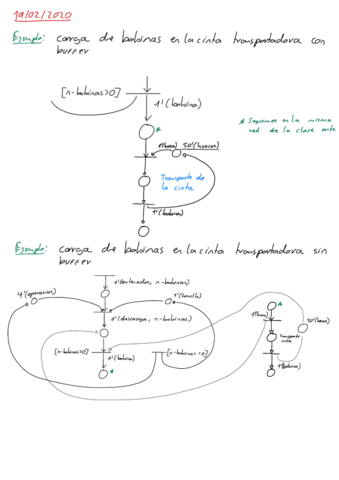 19/02/2020
Ejemplo: carga de bobinas en la cinta transportadora con
buffer
[n-bobinas>0]
1'(bobina)
*
* Seguimos en la misma
red de la clase ante
1'(hueco) 50'(huecos)
Transporte de
la cinta
1'(bobina)
Ejemplo: carga de bobinas en la cinta transportadora sin
buffer
1'(contenedor, n-bobinas)
4'(operarios)
1'(descarga, n-bobinas)
[n-bobinas>0]
1'(bobina)
[n-bobinas=0]
*
*
1'(hueco)
50'(hueco)
Transporte
cinta
1'(bobina)